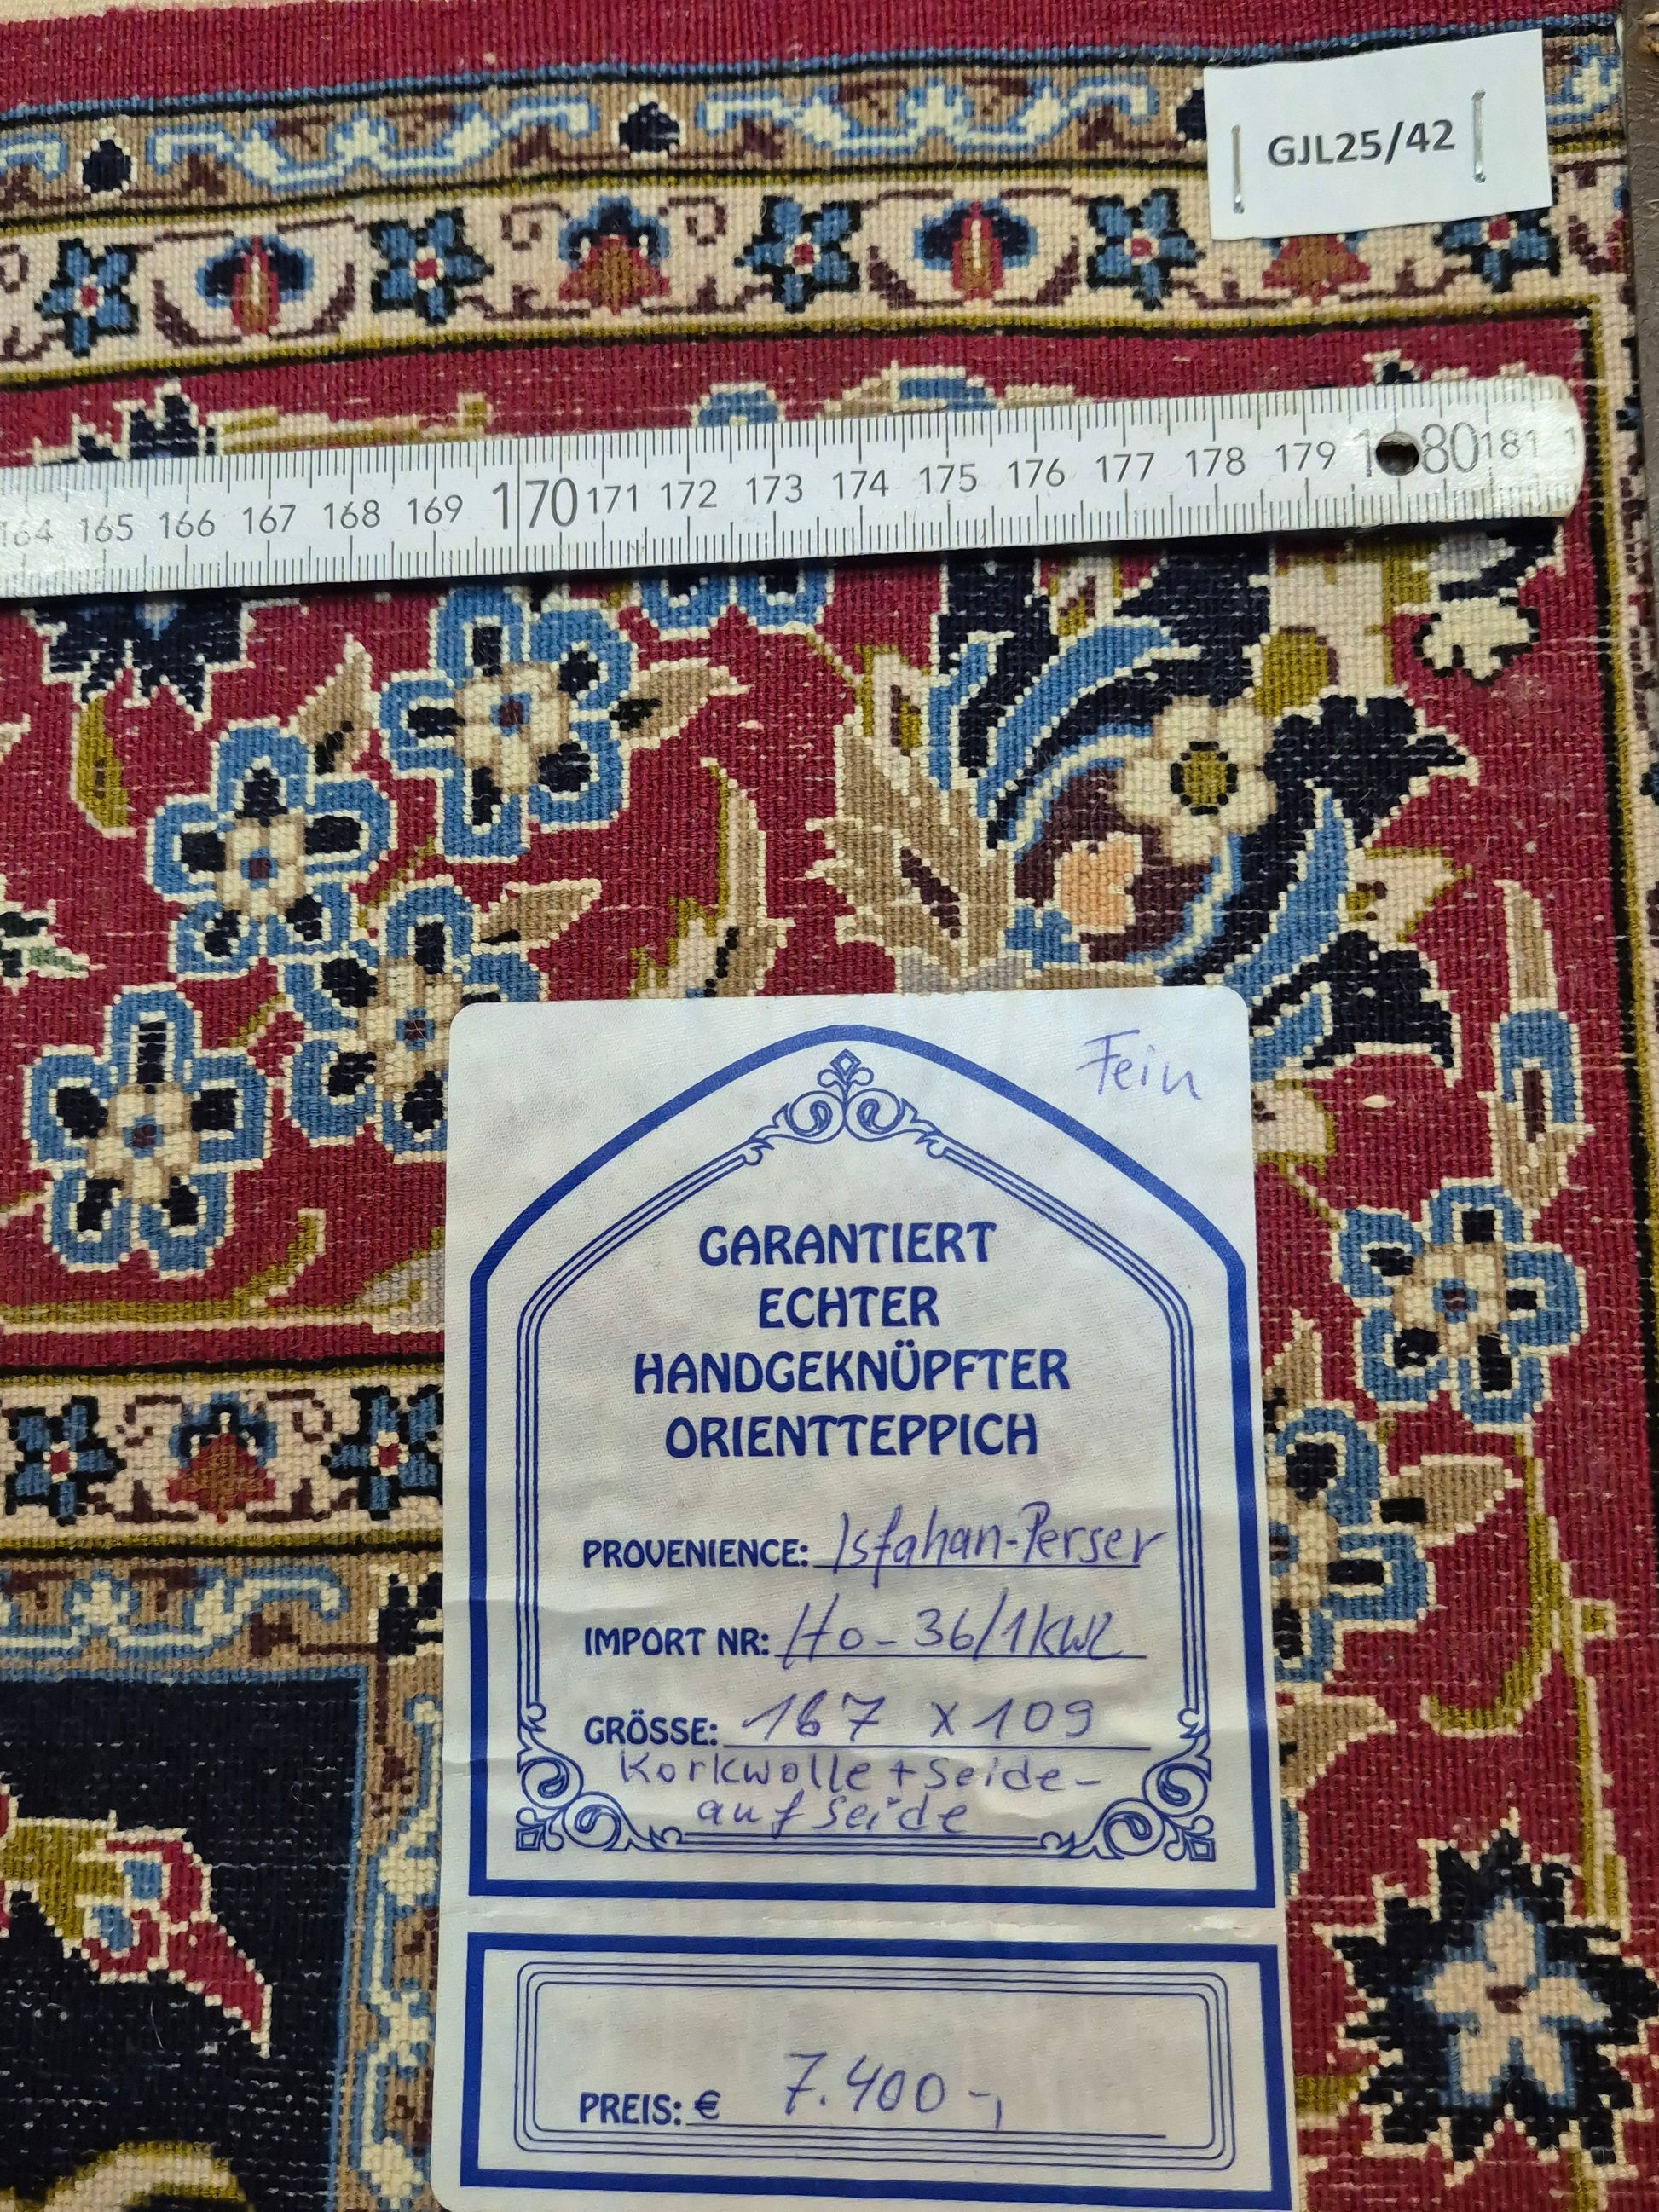 GJL25/42
164 165 166 167 168 169 170 171 172 173 174 175 176 177 178 179 180 181 1
Fein
GARANTIERT
ECHTER
HANDGEKNÜPFTER
ORIENTTEPPICH
PROVENIENCE: Isfahan-Perser
IMPORT NR: Ho-36/1KWL
GRÖSSE: 167 x 109
Korkwolle + Seide-
auf Seide
PREIS: € 7.400-,